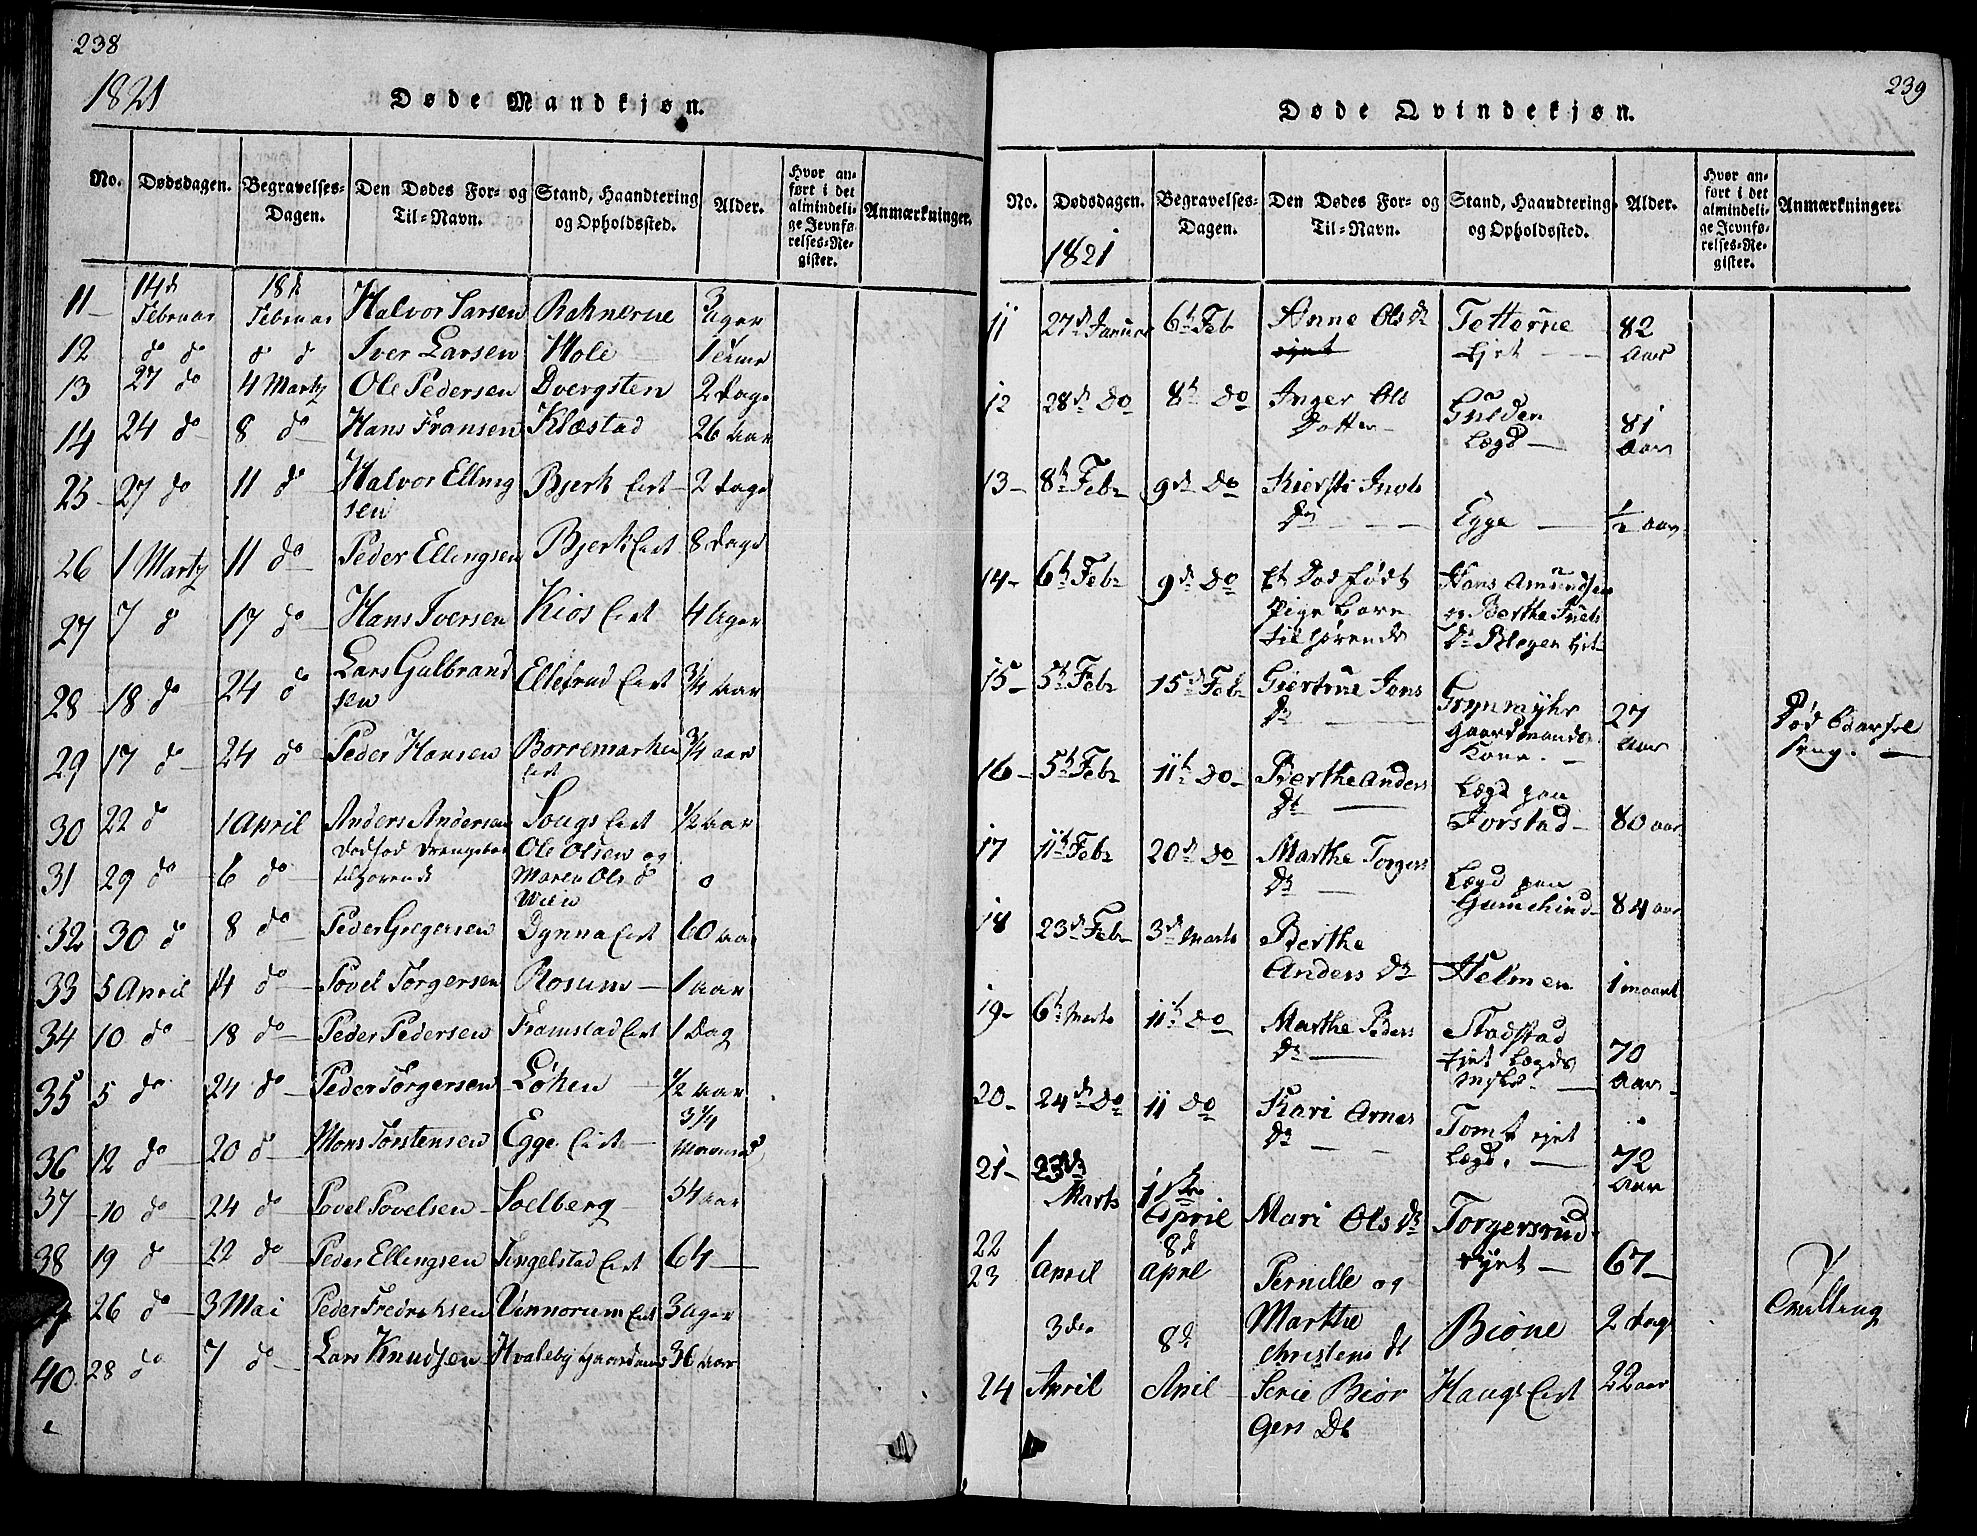 238
1821
Døde Mandkjøn.
No. Dødsdagen. Begravelses-Dagen. Den Dødes For- og Til-Navn. Stand, Haandtering og Opholdssted. Alder. Hvor anført i det almindelige Jevnførelses-Register. Anmærkninger.
11 14d Februar 18d Februar Halvor Larsen Rahnerue 3 uger
12 do do d d Iver Larsen Hole 1
13 27 do 4 Marty Ole Pedersen Dvergsten 2 dage
14 24 do 8 do Hans Fransen Klæstad 26 aar
25 27 do 11 do Halvor Elling
sen Bjerk Eiet 2 dage
26 1 Marty 11 do Peder Ellingsen Bjerk Eiet 8 dage
27 7 d 17 do Hans Iversen Kios Eiet 4 uger
28 18 do 24 d Lars Gulbrand
sen Ellefrud Eiet 3/4 aar
29 17 do 24 do Peder Hansen Borremarken
Eiet 3/4 aar
30 22 d 1 April Anders Andersen Sougs Eiet 1/2 aar
31 29 do 6 do
tilhørende Ole Olsen og
Maren Ols d
Wien o
32 30 d 8 do Peder Gregersen Dynna Eiet 60 aar
33 5 April 14 do Povel Torgersen Rosum 1 aar
34 10 do 18 do Peder Pedersen Framstad Eiet 1 Dag
35 5 do 24 do Peder Torgersen Løken 1/2 aar
36 12 do 20 d Mons Torstensen Egge Eiet 3 1/4
37 10 do 24 do Povel Povelsen Soelberg 54 aar
38 19 d 22 do Peder Ellingsen Tingelstad Eiet 64
26 do 3 Mai Peder Fredriksen Vinnorum Eiet 3 uger
40 28 d 7 do Lars Knudsen Hvaleby 36 aar
239
Døde Qvindekjøn.
No. Dødsdagen. Begravelses-Dagen. Den Dødes For- og Til-Navn. Stand, Haandtering og Opholdssted. Alder. Hvor anført i det almindelige Jevnførelses-Register. Anmærkninger.
1821
11 27d Januar 6h Feb Anne Ols Dr Tetterue
Ejet 82
aar
12 28d Do 8h Do Inger Ols
Datter Gulden
Lægd 81
aar
13 8h Febr 9d Do Kiersti
Dr Egge 1/2 aar
14 6h Febr 9d Do Et Død født
Pige barn
tilhørende Hans Amundsen
og Berthe
Dr Ejet
15 5h Febr 15d Febr Giertrue Jens
Dr Grynnayhr
Gaardmands
Kone. 27
aar Død i Barsel
seng.
16 5h Febr 11h Do Berthe Anders
Dr Lægd paa
Jorstad 80 aar
17 11h Febr 20d Do Marthe Torgers
Dr Lægd paa
84 aar
18 23d Febr 3d Marts Berthe
Anders Dr Helmen 1 maaned
19 6h Marts 11h Do Marthe Peders
Dr Stadstad
Ejet Lægds
70
aar
20 24d Do 11 Do Kari Arnes
Dr Tomt ejet
Lægd. 72
aar
21 23de
Marts 1ste
April Mari Ols Dr Torgersrud
ejet 67
22
23 1
April 8d
April Pernille og
Marthe
Christens Dt Biøne 2 dage Tvilling
24 3die
April 8d
April Serie Biør
gers Dt Haugs Eiet 22 aar